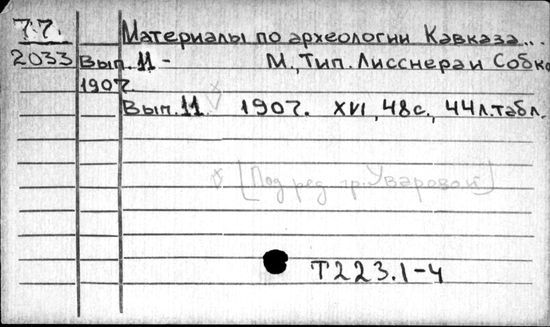 7.7. Материалы по археологии Кавказа...
2033 Вып. 11 - М., Тип. Лисснера и Собко
1907.
Вып. 11 1907. XVI, 48 с., 44 л. табл.
[Под ред. гр. Уваровой]
Т223.1-4